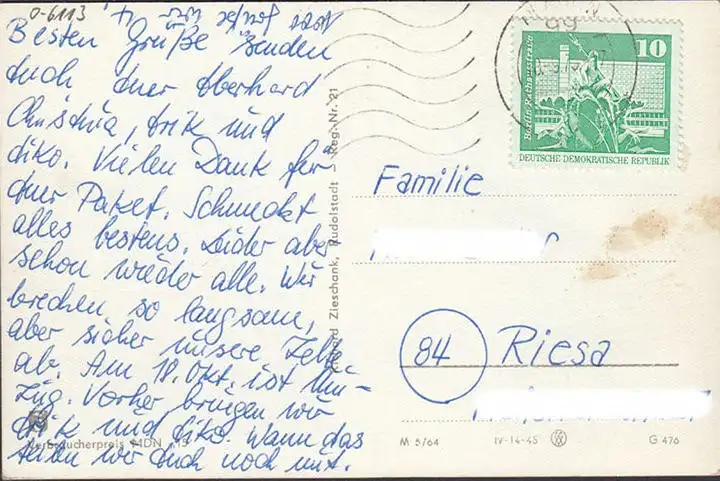 O-6113
Besten Grüße senden
Euch Euer Eberhard
Christina, Erik und
Eiko. Vielen Dank für
Euer Paket. Schmeckt
alles bestens. Leider aber
schon wieder alle. Wir
brechen so langsam,
aber sicher unsere Zelte
ab. Am 18. Okt. ist Um-
zug. Vorher bringen wir
Erik und Eiko. Wann das
teilen wir Euch noch mit.
Verbraucherpreis MDN
Zieschank, Rudolstadt - Reg.-Nr. 21
Berlin-Rathausstraße
10
DEUTSCHE DEMOKRATISCHE REPUBLIK
Familie
84 Riesa
M 5/64 IV-14-45 G 476